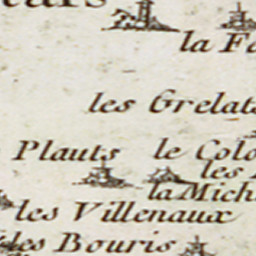 la Fo
les Grelats
Plauts
le Colo
les
la Mich
les Villenaux
les Bouris